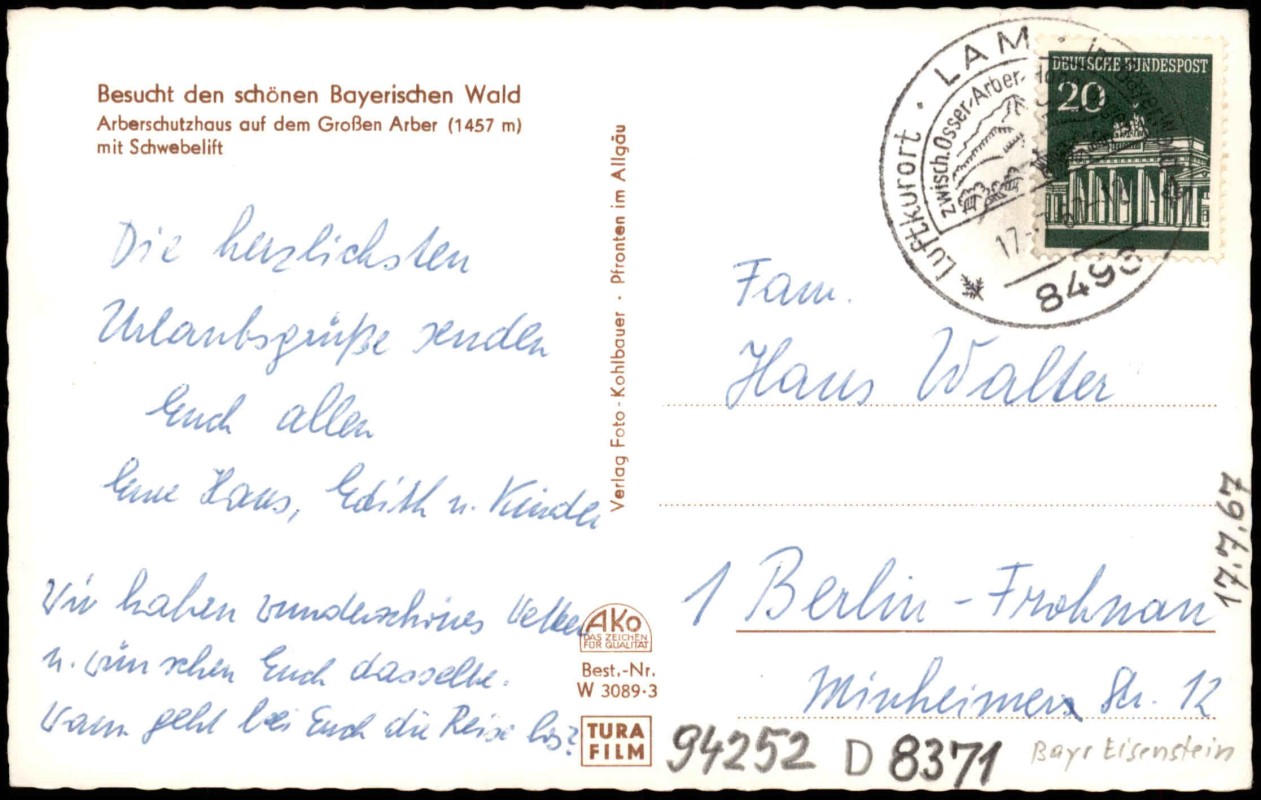 Besucht den schönen Bayerischen Wald
Arberschutzhaus auf dem Großen Arber (1457 m)
mit Schwebelift
Die herzlichsten
Urlaubsgrüße senden
Euch allen
Eure Hans, Edith u. Kinder
Wir haben wunderschönes Wetter
u. wünschen Euch dasselbe.
Wann geht bei Euch die Reise los?
Verlag Foto-Kohlbauer · Pfronten im Allgäu
AKO
DAS ZEICHEN
FÜR QUALITÄT
Best.-Nr.
W 3089·3
TURA
FILM
Luftkurort · LAM ·
zwisch. Osser, Arber
17.
8496
DEUTSCHE BUNDESPOST
20
Fam.
Hans Walter
1 Berlin-Frohnau
Minheimer Str. 12
17.7.67
94252 D 8371 Bayr Eisenstein